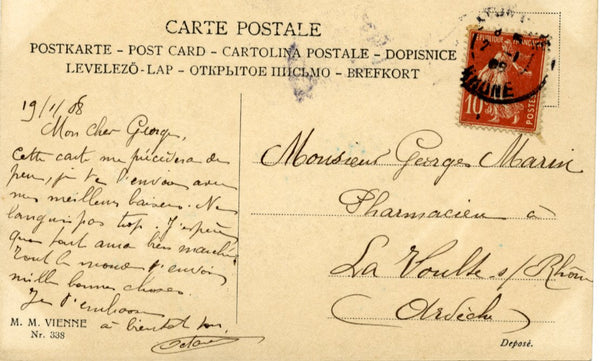 CARTE POSTALE
POSTKARTE – POST CARD – CARTOLINA POSTALE – DOPISNICE
LEVELEZŐ-LAP – ОТКРЫТОЕ ПИСЬМО – BREFKORT
REPUBLIQUE FRANÇAISE
10
POSTES
RHONE
19/1/08
Mon cher Georges,
Cette carte me précédera de
peu, je te l'envoie avec
mes meilleurs baisers. Ne
languis pas trop. J'espère
que tout aura bien marché
Tout le monde t'envoie
mille bonnes choses.
Je t'embrasse
à bientôt ton
Monsieur Georges Marin
Pharmacien à
La Voulte s/ Rhône
(Ardèche)
M. M. VIENNE
Nr. 338
Deposé.